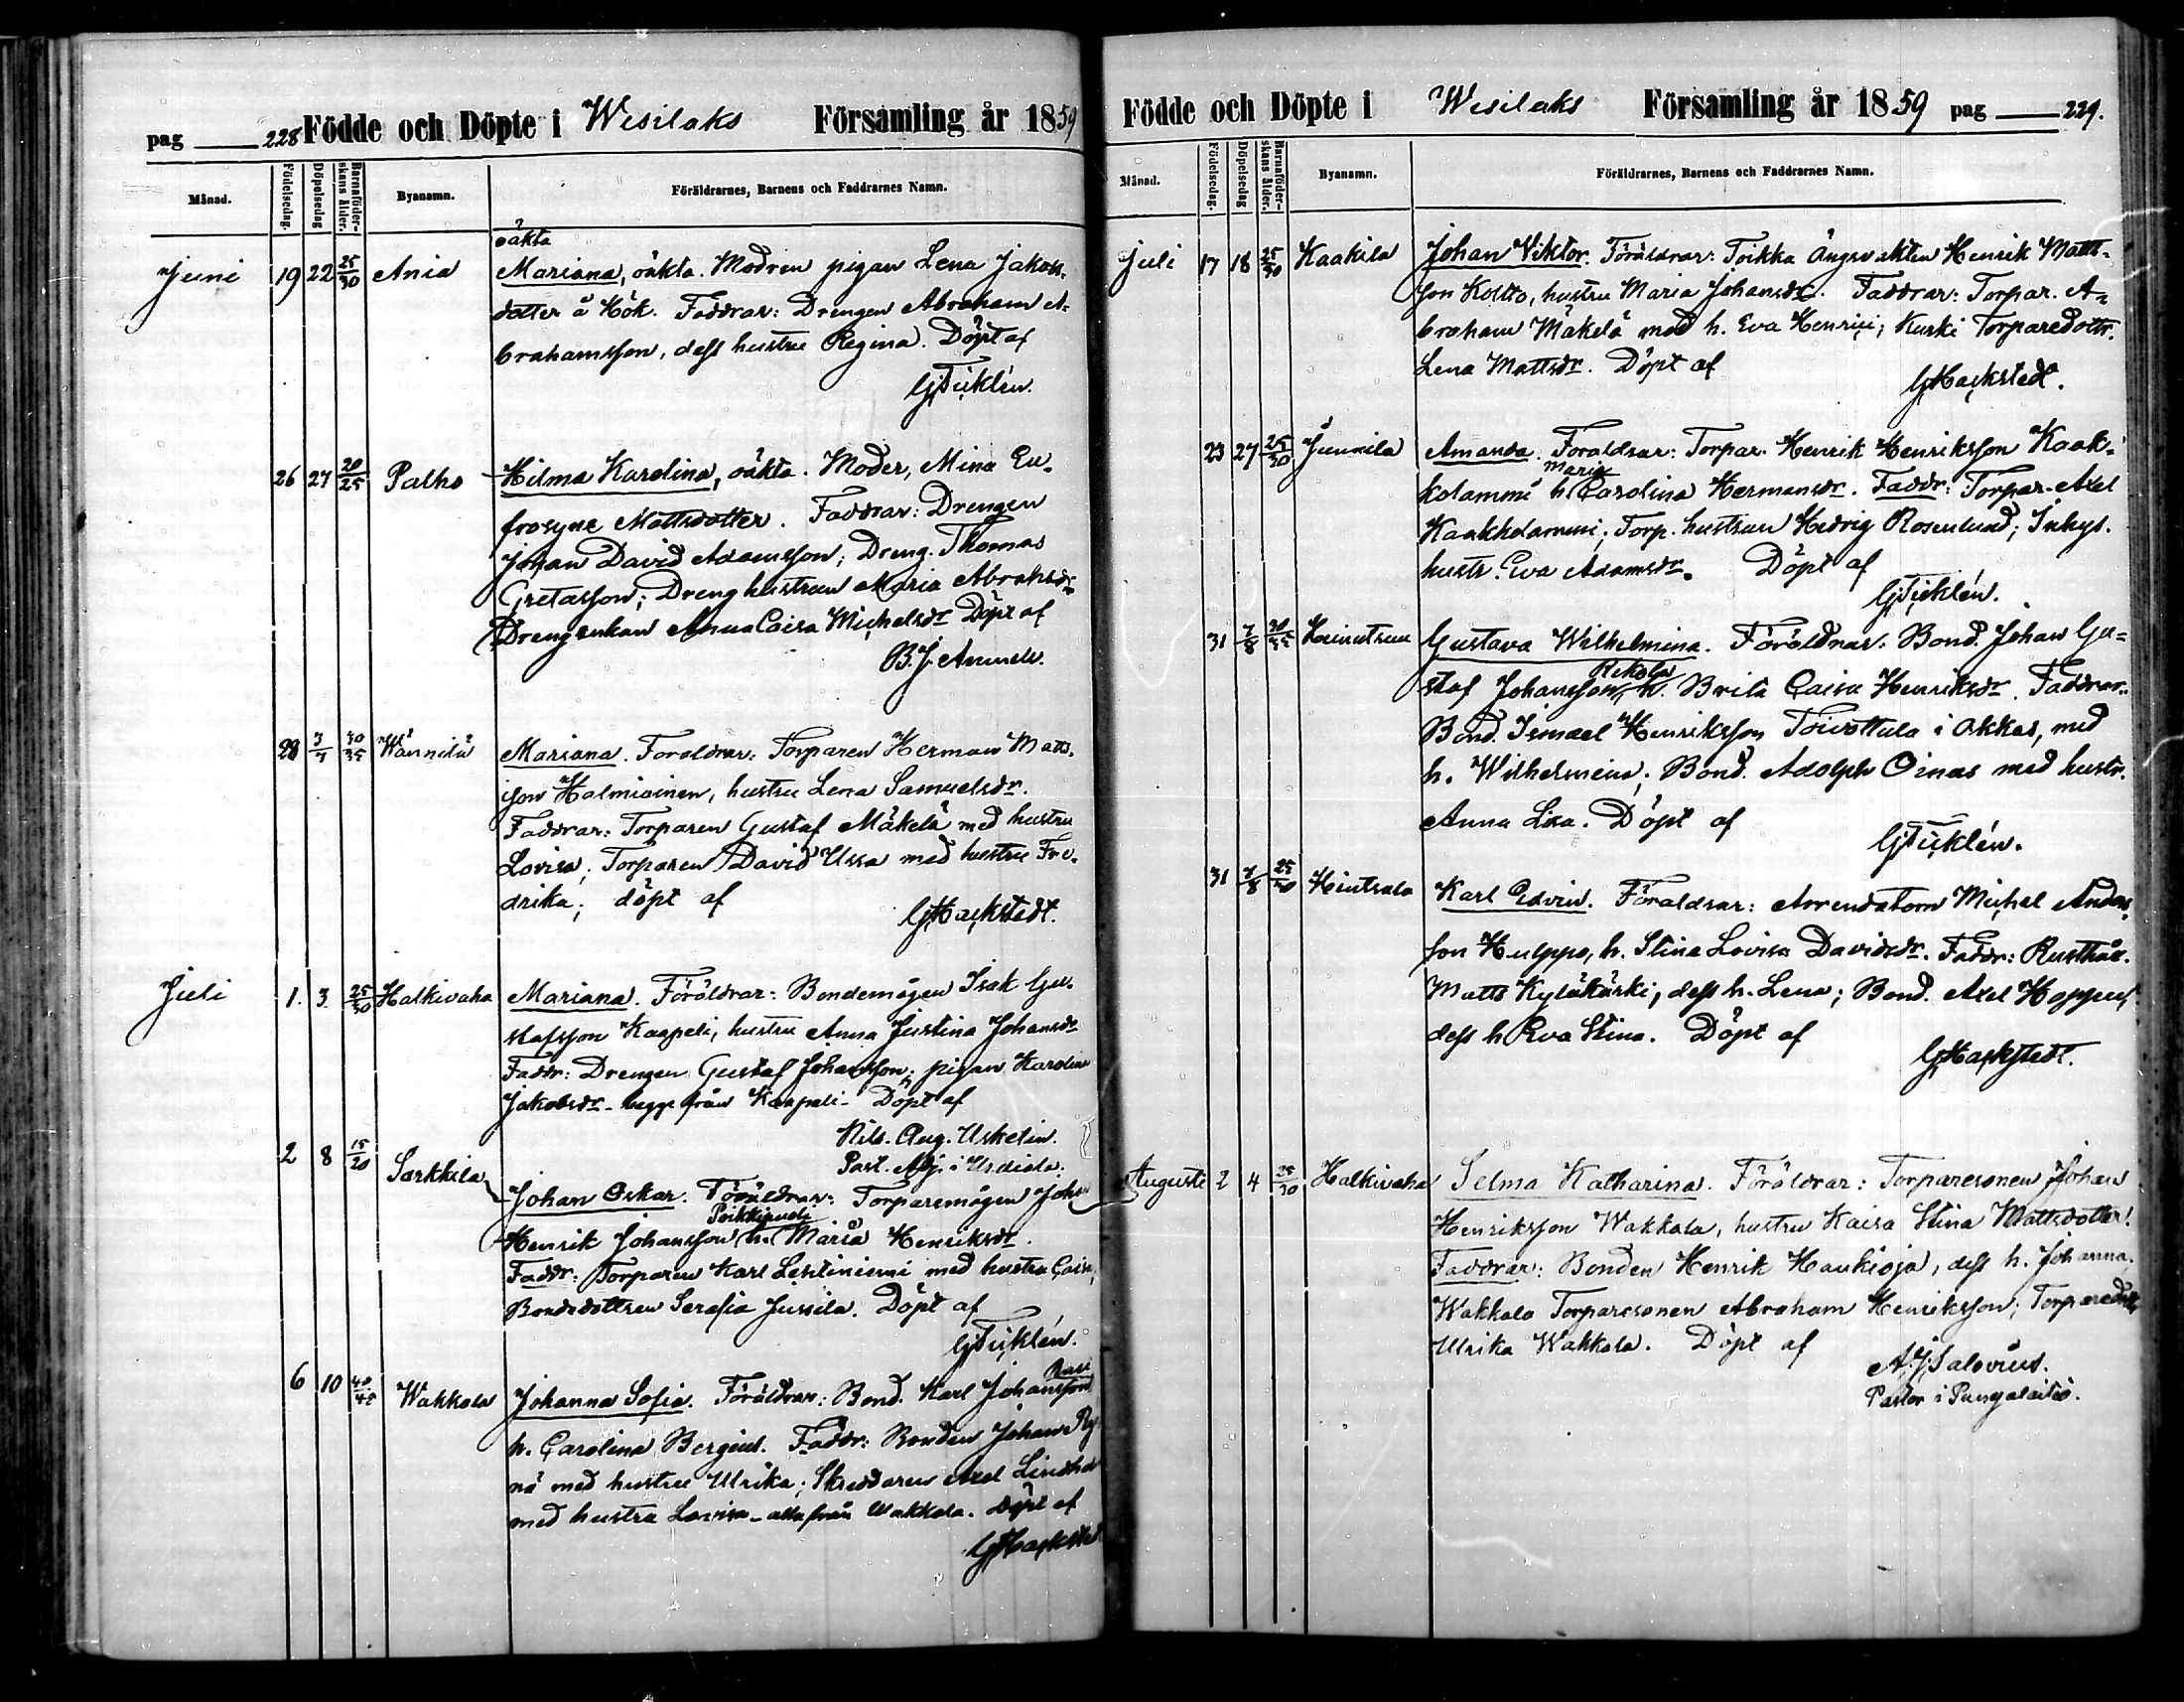 pag 228 Födde och Döpte i Wesilaks Församling år 1859
Månad. Födelsedag. Döpelsedag Barnaföderskans ålder. Byanamn. Föräldrarnes, Barnens och Faddrarnes Namn.
oäkta
Juni 19 22 25/30 Ania Mariana, oäkta. Modren pigan Lena Jakobs-
dotter å Hök. Faddrar: Drengen Abraham A-
brahamsson, dess hustru Regina. Döpt af
GjTicklén.
26 27 20/25 Palho Hilma Karolina, oäkta. Moder, Mina Eu-
frosyne Mattsdotter. Faddrar: Drengen
Johan David Adamsson; Dreng. Thomas
Gretasson; Dreng hustrun Maria Abrahsdr
Drengenkan Anna Caisa Michelsdr Döpt af
B. J.
28 3/7 30/35 Wännilä Mariana. Föräldrar: Torparen Herman Matts-
son Halmioinen, hustru Lena Samuelsdr.
Faddrar: Torparen Gustaf Mäkelä med hustru
Lovisa; Torparen David Ussa med hustru Fre-
drika; döpt af
GHackstedt.
Juli 1. 3 25/30 Halkivaha Mariana. Föräldrar: Bondemågen Isak Gu-
stafsson Kaapeli, hustru Anna Justina Johansdr
Faddr: Drengen Gustaf Johansson; pigan Karolina
Jakobsdr - begge från Kaapeli - Döpt af
Nils. Aug. Uskelin.
Past. Adj. i Urdiala.
2 8 15/20 Sarkkila Johan Oskar. Föräldrar: Torparemågen Johan
Poikkipuoli
Henrik Johansson h. Maria Henriksdr.
Faddr: Torparen Karl Lestiniemi med hustru Caisa,
Bondedottren Serafia Jussila. Döpt af
GjTicklén.
6 10 40/45 Wakkala Johanna Sofia. Föräldrar: Bond. Karl Johansson
h. Carolina Bergius. Faddr: Bonden Johan
nä med hustru Ulrika; Skreddaren Axel
med hustru Lovisa - alla från Wakkala. Döpt af
GHackstedt
Födde och Döpte i Wesilaks Församling år 1859 pag 229.
Månad. Födelsedag. Döpelsedag Barnaföderskans ålder. Byanamn. Föräldrarnes, Barnens och Faddrarnes Namn.
Juli 17 18 25/30 Kaakila Johan Viktor. Föräldrar: Toikka Ängsvakten Henrik Matts-
son Koltto, hustru Maria Johansdr. Faddrar: Torpar. A-
braham Mäkelä med h. Eva Henrici; Kurki Torparedottr.
Lena Mattsdr. Döpt af
GHackstedt.
23 27 25/30 Junnila Amanda. Föräldrar: Torpar. Henrik Henriksson Kaak-
Maria
kolammi h. Carolina Hermansdr. Faddr: Torpar. Axel
Kaakkolammi; Torp. hustrun Hedvig Rosenlund; Inhys.
hustr. Eva Adamsdr. Döpt af
GjTicklén.
31 7/8 Koinutsun Gustava Wilhelmina. Föräldrar: Bond. Johan Gu-
Rekola
staf Johansson, h. Brita Caisa Henriksdr. Faddrar:
Bond. Ismael Henriksson Toivottula i Akkas, med
h. Wilhelmina; Bond. Adolph Oinas med hustr.
Anna Lisa. Döpt af
GjTicklén.
31 7/8 25/30 Hintsala Karl Edvin. Föräldrar: Arrendatorn Michel Anders-
son Hulppo, h. Stina Lovisa Davidsdr. Faddr: Rusthål.
Matts Kyläkurki, dess h. Lena; Bond. Axel Hoppu,
dess h Eva Stina. Döpt af
GHackstedt.
Augusti 2 4 25/30 Halkivaha Selma Katharina. Föräldrar: Torparesonen Johan
Henriksson Wakkala, hustru Kaisa Stina Mattsdotter.
Faddrar: Bonden Henrik Haukioja, dess h. Johanna.
Wakkala Torparesonen Abraham Henriksson; Torparedottr
Ulrika Wakkala. Döpt af
A. J. Salovius.
Pastor i Pungalaitio.